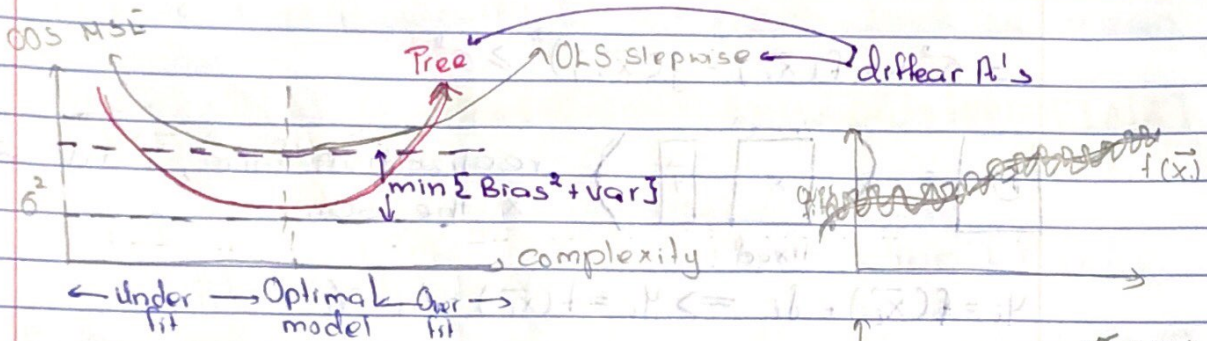 OOS MSE
Tree
OLS stepwise
differ A's
σ²
min{Bias² + var}
f(x⃗)
complexity
Under fit
Optimal model
Over fit